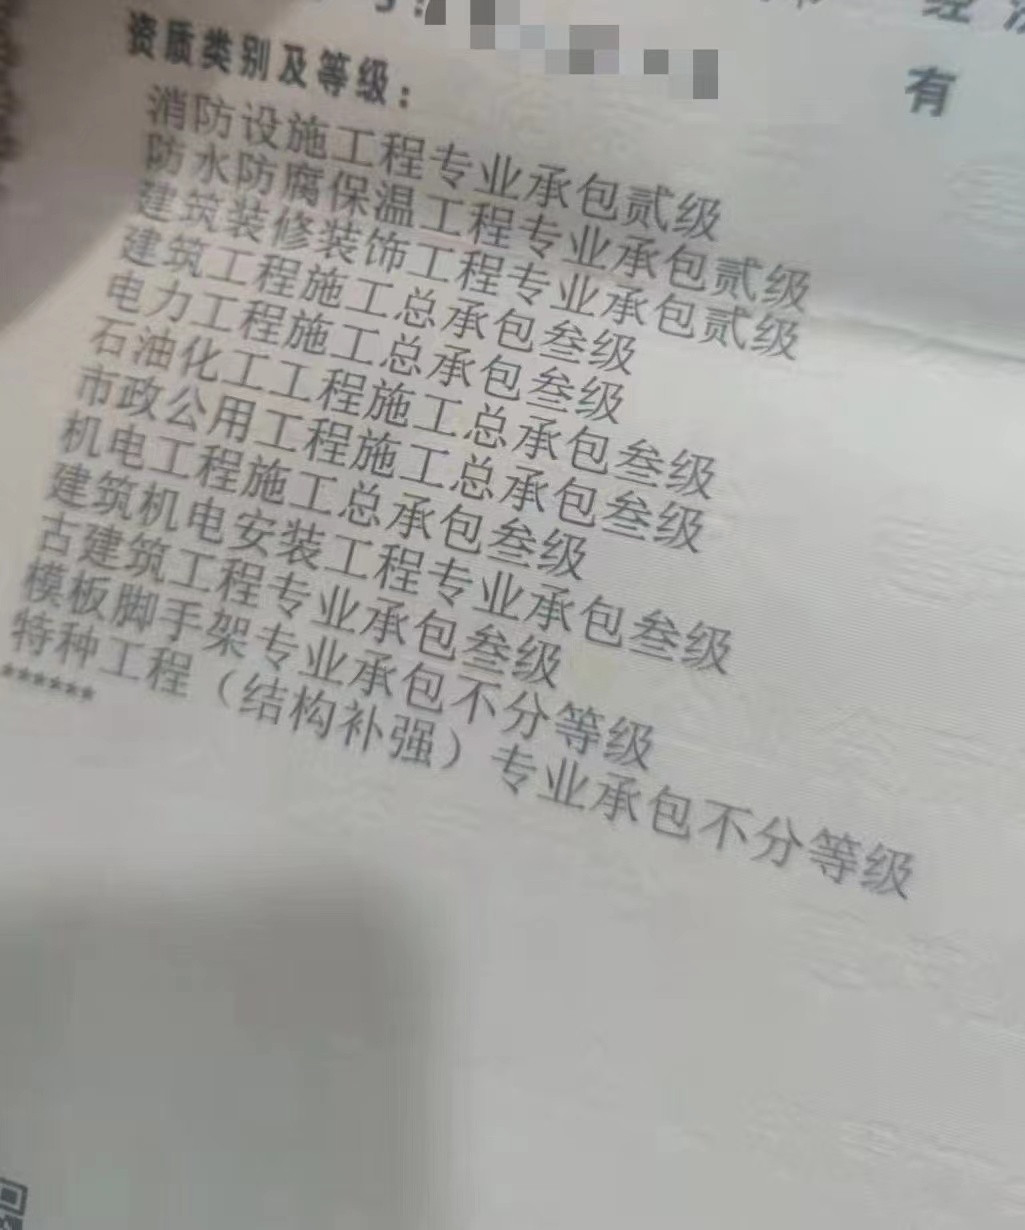 有
资质类别及等级：
消防设施工程专业承包贰级
防水防腐保温工程专业承包贰级
建筑装修装饰工程专业承包贰级
建筑工程施工总承包叁级
电力工程施工总承包叁级
石油化工工程施工总承包叁级
市政公用工程施工总承包叁级
机电工程施工总承包叁级
建筑机电安装工程专业承包叁级
古建筑工程专业承包叁级
模板脚手架专业承包不分等级
特种工程（结构补强）专业承包不分等级
******